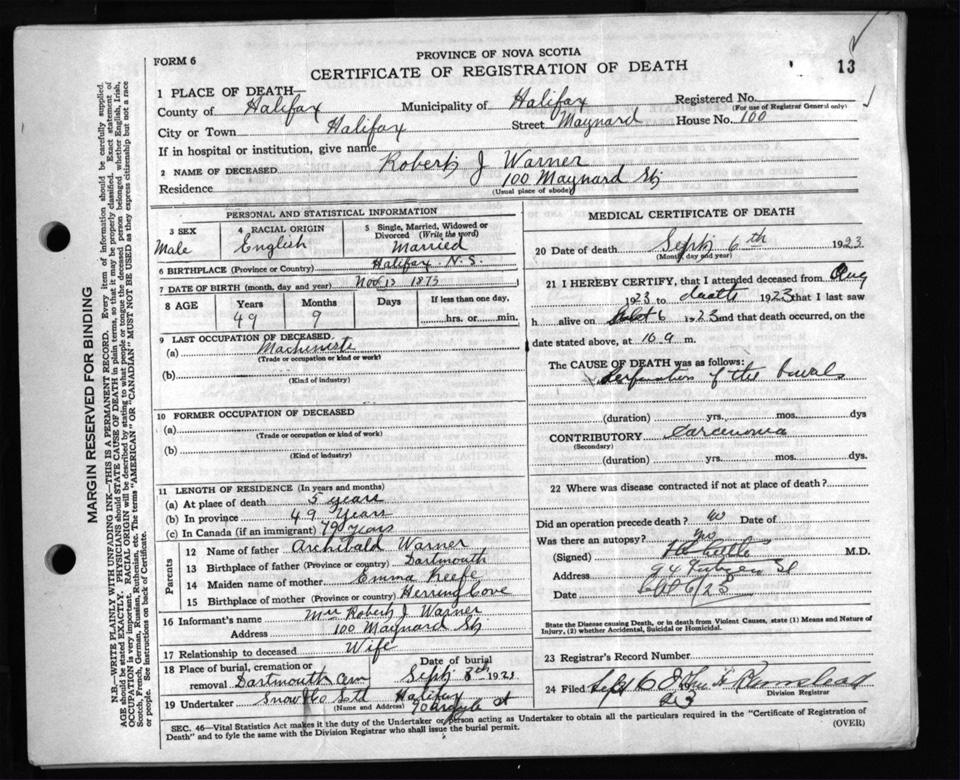 FORM 6
PROVINCE OF NOVA SCOTIA
CERTIFICATE OF REGISTRATION OF DEATH
13
1 PLACE OF DEATH
County of Halifax Municipality of Halifax Registered No.
(For use of Registrar General only)
City or Town Halifax Street Maynard House No. 100
If in hospital or institution, give name
2 NAME OF DECEASED Robert J Warner
Residence 100 Maynard St
(Usual place of abode)
PERSONAL AND STATISTICAL INFORMATION
3 SEX 4 RACIAL ORIGIN 5 Single, Married, Widowed or Divorced (Write the word)
Male English Married
6 BIRTHPLACE (Province or Country) Halifax N.S.
7 DATE OF BIRTH (month, day and year) Nov 13 1873
8 AGE Years Months Days If less than one day,
49 9 hrs. or min.
9 LAST OCCUPATION OF DECEASED
(a) Machineste
(Trade or occupation or kind of work)
(b)
(Kind of industry)
10 FORMER OCCUPATION OF DECEASED
(a)
(Trade or occupation or kind of work)
(b)
(Kind of industry)
11 LENGTH OF RESIDENCE (In years and months)
(a) At place of death 5 years
(b) In province 49 Years
(c) In Canada (if an immigrant) Years
Parents
12 Name of father Archibald Warner
13 Birthplace of father (Province or country) Dartmouth
14 Maiden name of mother Emma Keefe
15 Birthplace of mother (Province or country) Herring Cove
16 Informant's name Mrs Robert J Warner
Address 100 Maynard St
17 Relationship to deceased Wife
18 Place of burial, cremation or removal Dartmouth Cem Date of burial Sept 8th 192
19 Undertaker Snow & Co Ltd Halifax
(Name and Address) 90 Argyle St
MEDICAL CERTIFICATE OF DEATH
20 Date of death Sept 6th 1923
(Month, day and year)
21 I HEREBY CERTIFY, that I attended deceased from Aug
1923 to death 1923 that I last saw
h alive on Sept 6 1923 and that death occurred, on the
date stated above, at 10 a m.
The CAUSE OF DEATH was as follows:
Perforation of the bowels
(duration) yrs. mos. dys
CONTRIBUTORY Carcinoma
(Secondary)
(duration) yrs. mos. dys.
22 Where was disease contracted if not at place of death?
Did an operation precede death? no Date of
Was there an autopsy? no
(Signed) M.D.
Address 94 St
Date Sept 6/23
State the Disease causing Death, or in death from Violent Causes, state (1) Means and Nature of
Injury, (2) whether Accidental, Suicidal or Homicidal.
23 Registrar's Record Number
24 Filed Sept 6
Division Registrar
SEC. 46—Vital Statistics Act makes it the duty of the Undertaker or person acting as Undertaker to obtain all the particulars required in the "Certificate of Registration of
Death" and to fyle the same with the Division Registrar who shall issue the burial permit. (OVER)
MARGIN RESERVED FOR BINDING
N.B.—WRITE PLAINLY WITH UNFADING INK—THIS IS A PERMANENT RECORD. Every item of information should be carefully supplied.
AGE should be stated EXACTLY. PHYSICIANS should STATE CAUSE OF DEATH in plain terms, so that it may be properly classified. Exact statement of
OCCUPATION is very important. RACIAL ORIGIN will be described by stating to what people or tongue the deceased person belonged whether English, Irish,
Scotch, French, German, Russian, Ruthenian, etc. The terms "AMERICAN" OR "CANADIAN" MUST NOT BE USED as they express citizenship but not a race
or people. See instructions on back of Certificate.